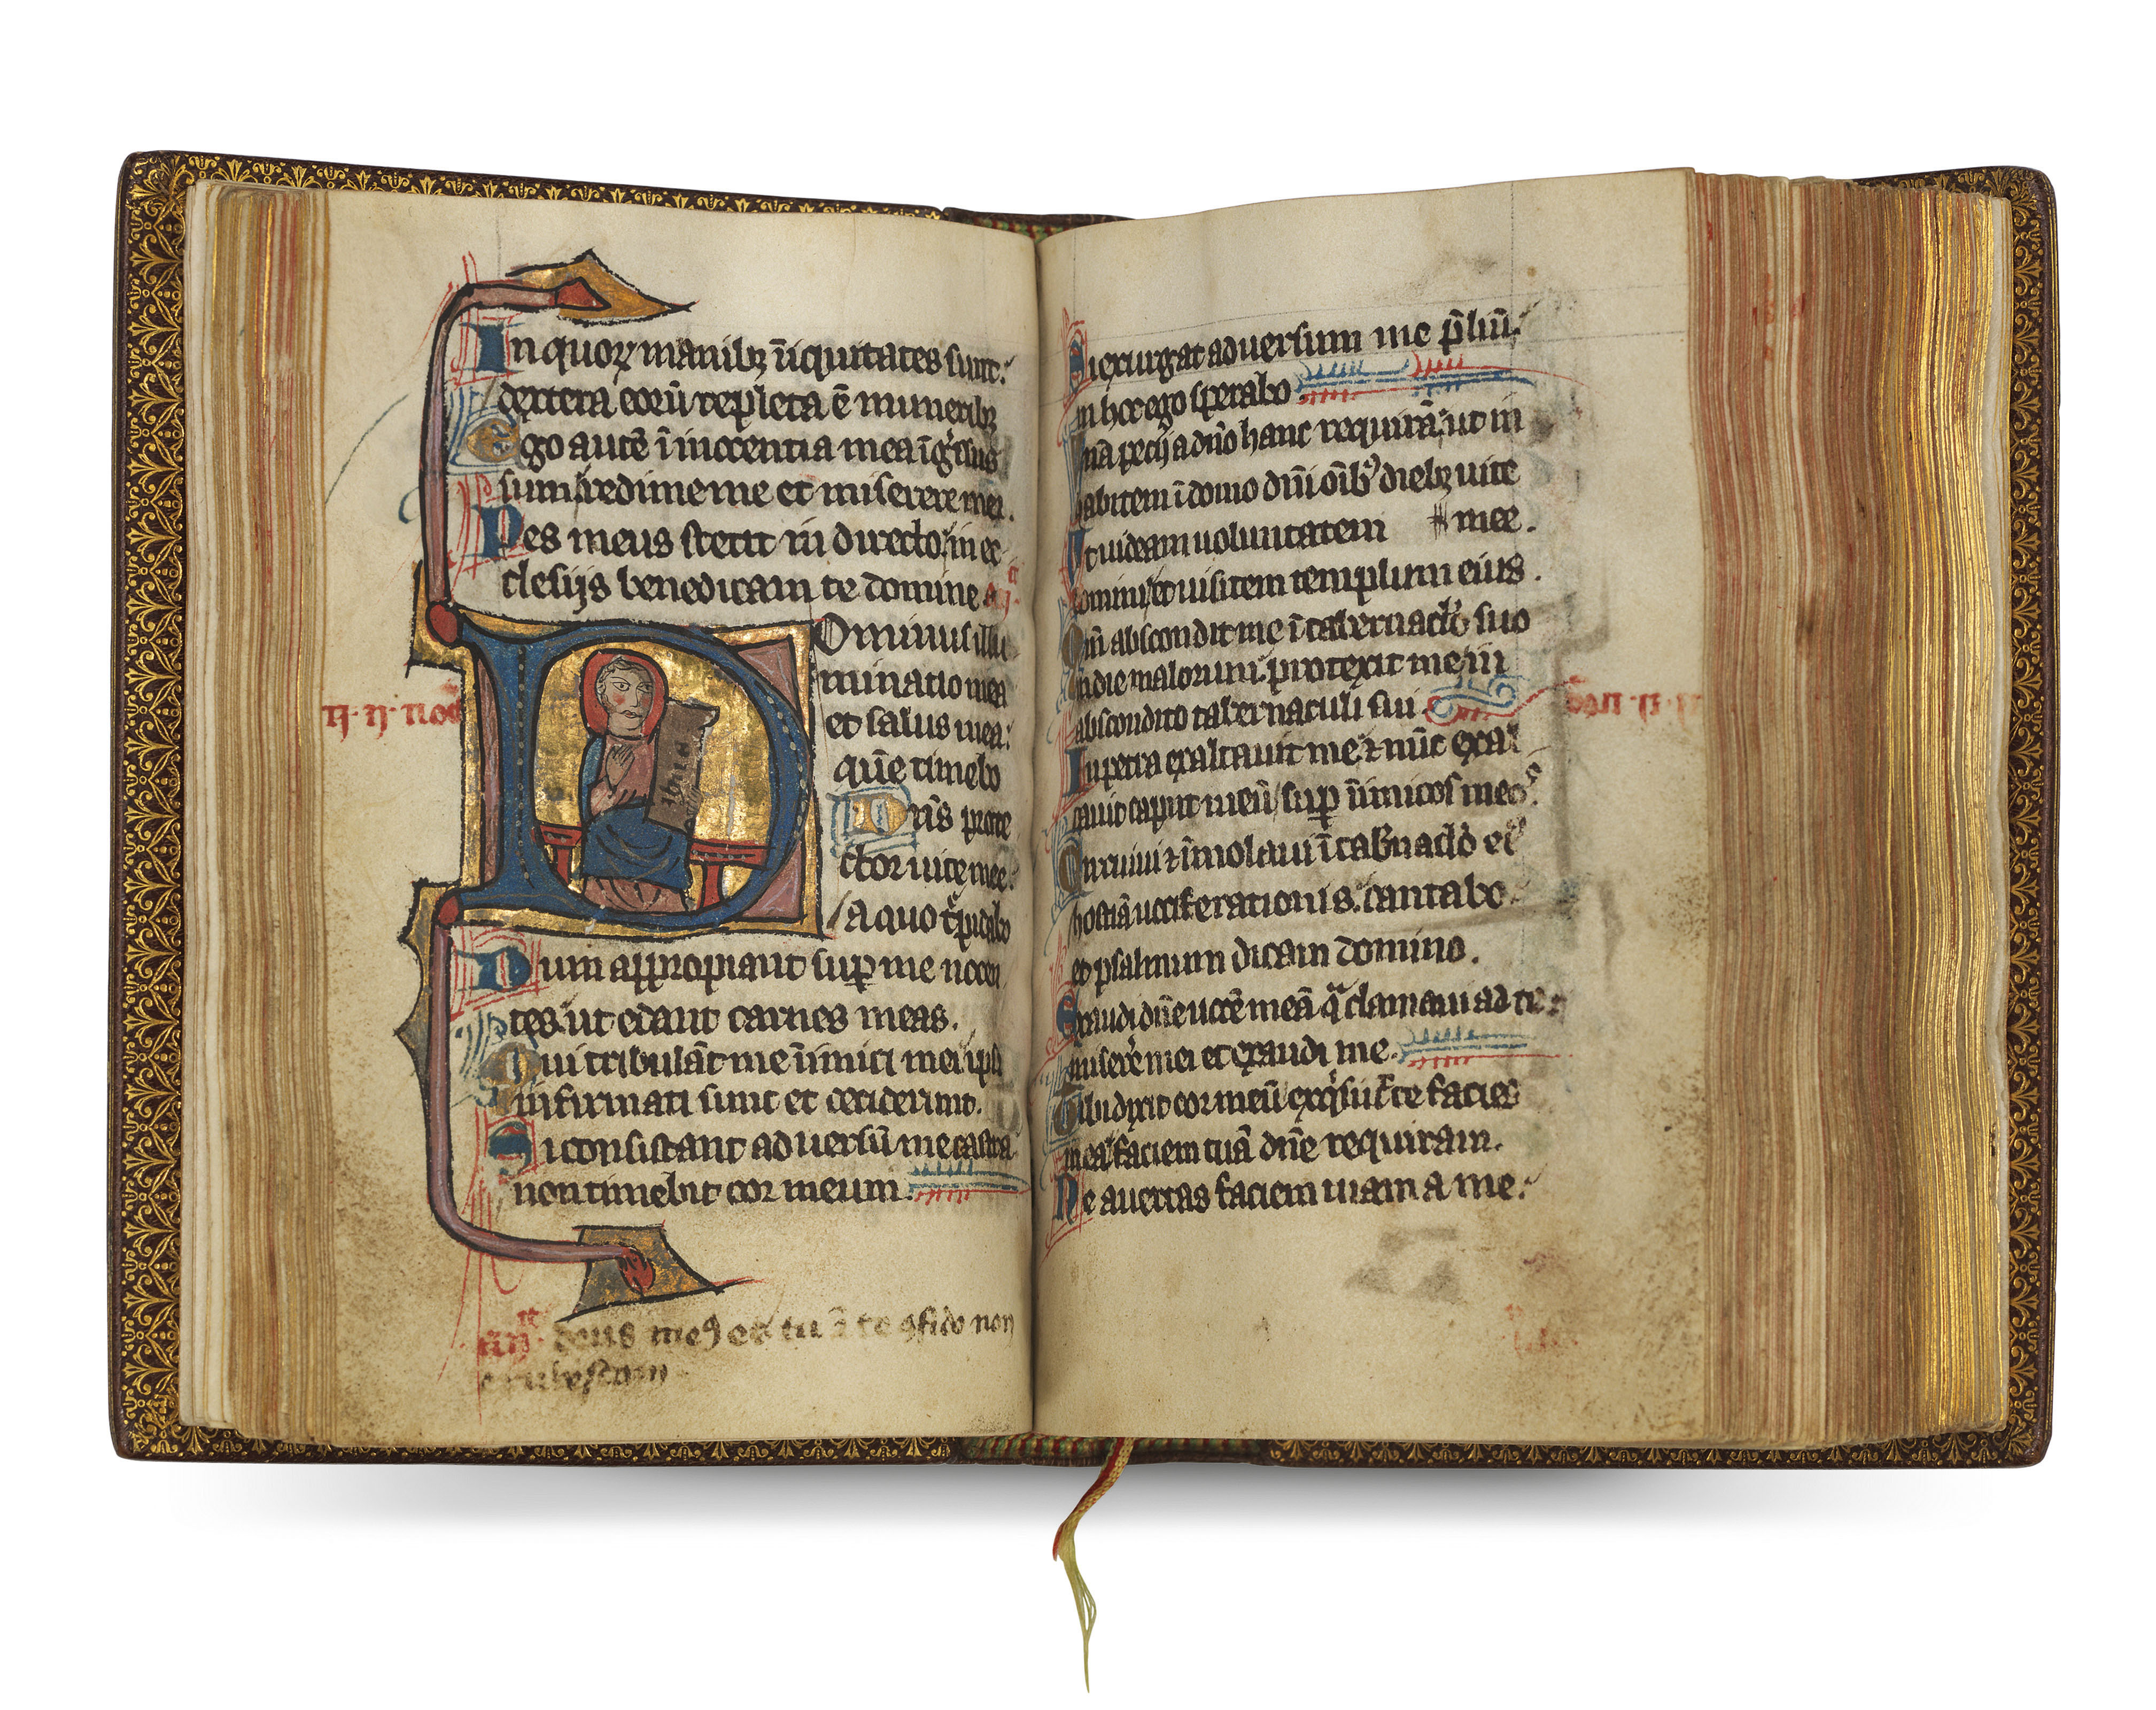 In quoꝝ manibꝫ īiquitates sunt.
dextera eorū repleta ē muneribꝫ
Ego autē ī inocentia mea īgͥssus
sum redime me et miserere mei.
Pes meus stetit in directo in ec
clesijs benedicam te domine
Dominus illu
minatio mea
et salus mea:
quē timebo
Dn̄s prote
ctor vite mee.
a quo tͥpidabo
Dum appropiant suꝑ me nocen
tes ut edant carnes meas.
Qui tribulāt me īimici mei ipsi
infirmati sunt et ceciderunt.
Si consistant adversū me castra
non timebit cor meum.
deus meꝰ es tu ī te ꝯfido non
erubescam
Si exurgat adversum me p̄liū.
in hoc ego sperabo
Unā pecij a dn̄o hanc requirā ut in
habitem ī domo dn̄i oīb⁹ diebꝫ vite
mee.
Ut videam voluntatem
domini et visitem templum eius.
Qm̄ abscondit me ī tabernaclo suo
in die malorum protexit me in
abscondito tabernaculi sui
In petra exaltavit me ⁊ nūc exal
tavit caput meū suꝑ īimicos meos.
Circuivi ⁊ īmolavi ī tab̄naclo eiꝰ
hostiā vociferationis cantabo
et psalmum dicam domino.
Exaudi dn̄e vocē meā qͣ clamavi ad te.
miserē mei et exaudi me.
Tibi dixit cor meū exqͥsivit te facies
mea faciem tuā dn̄e requiram.
Ne avertas faciem tuam a me.